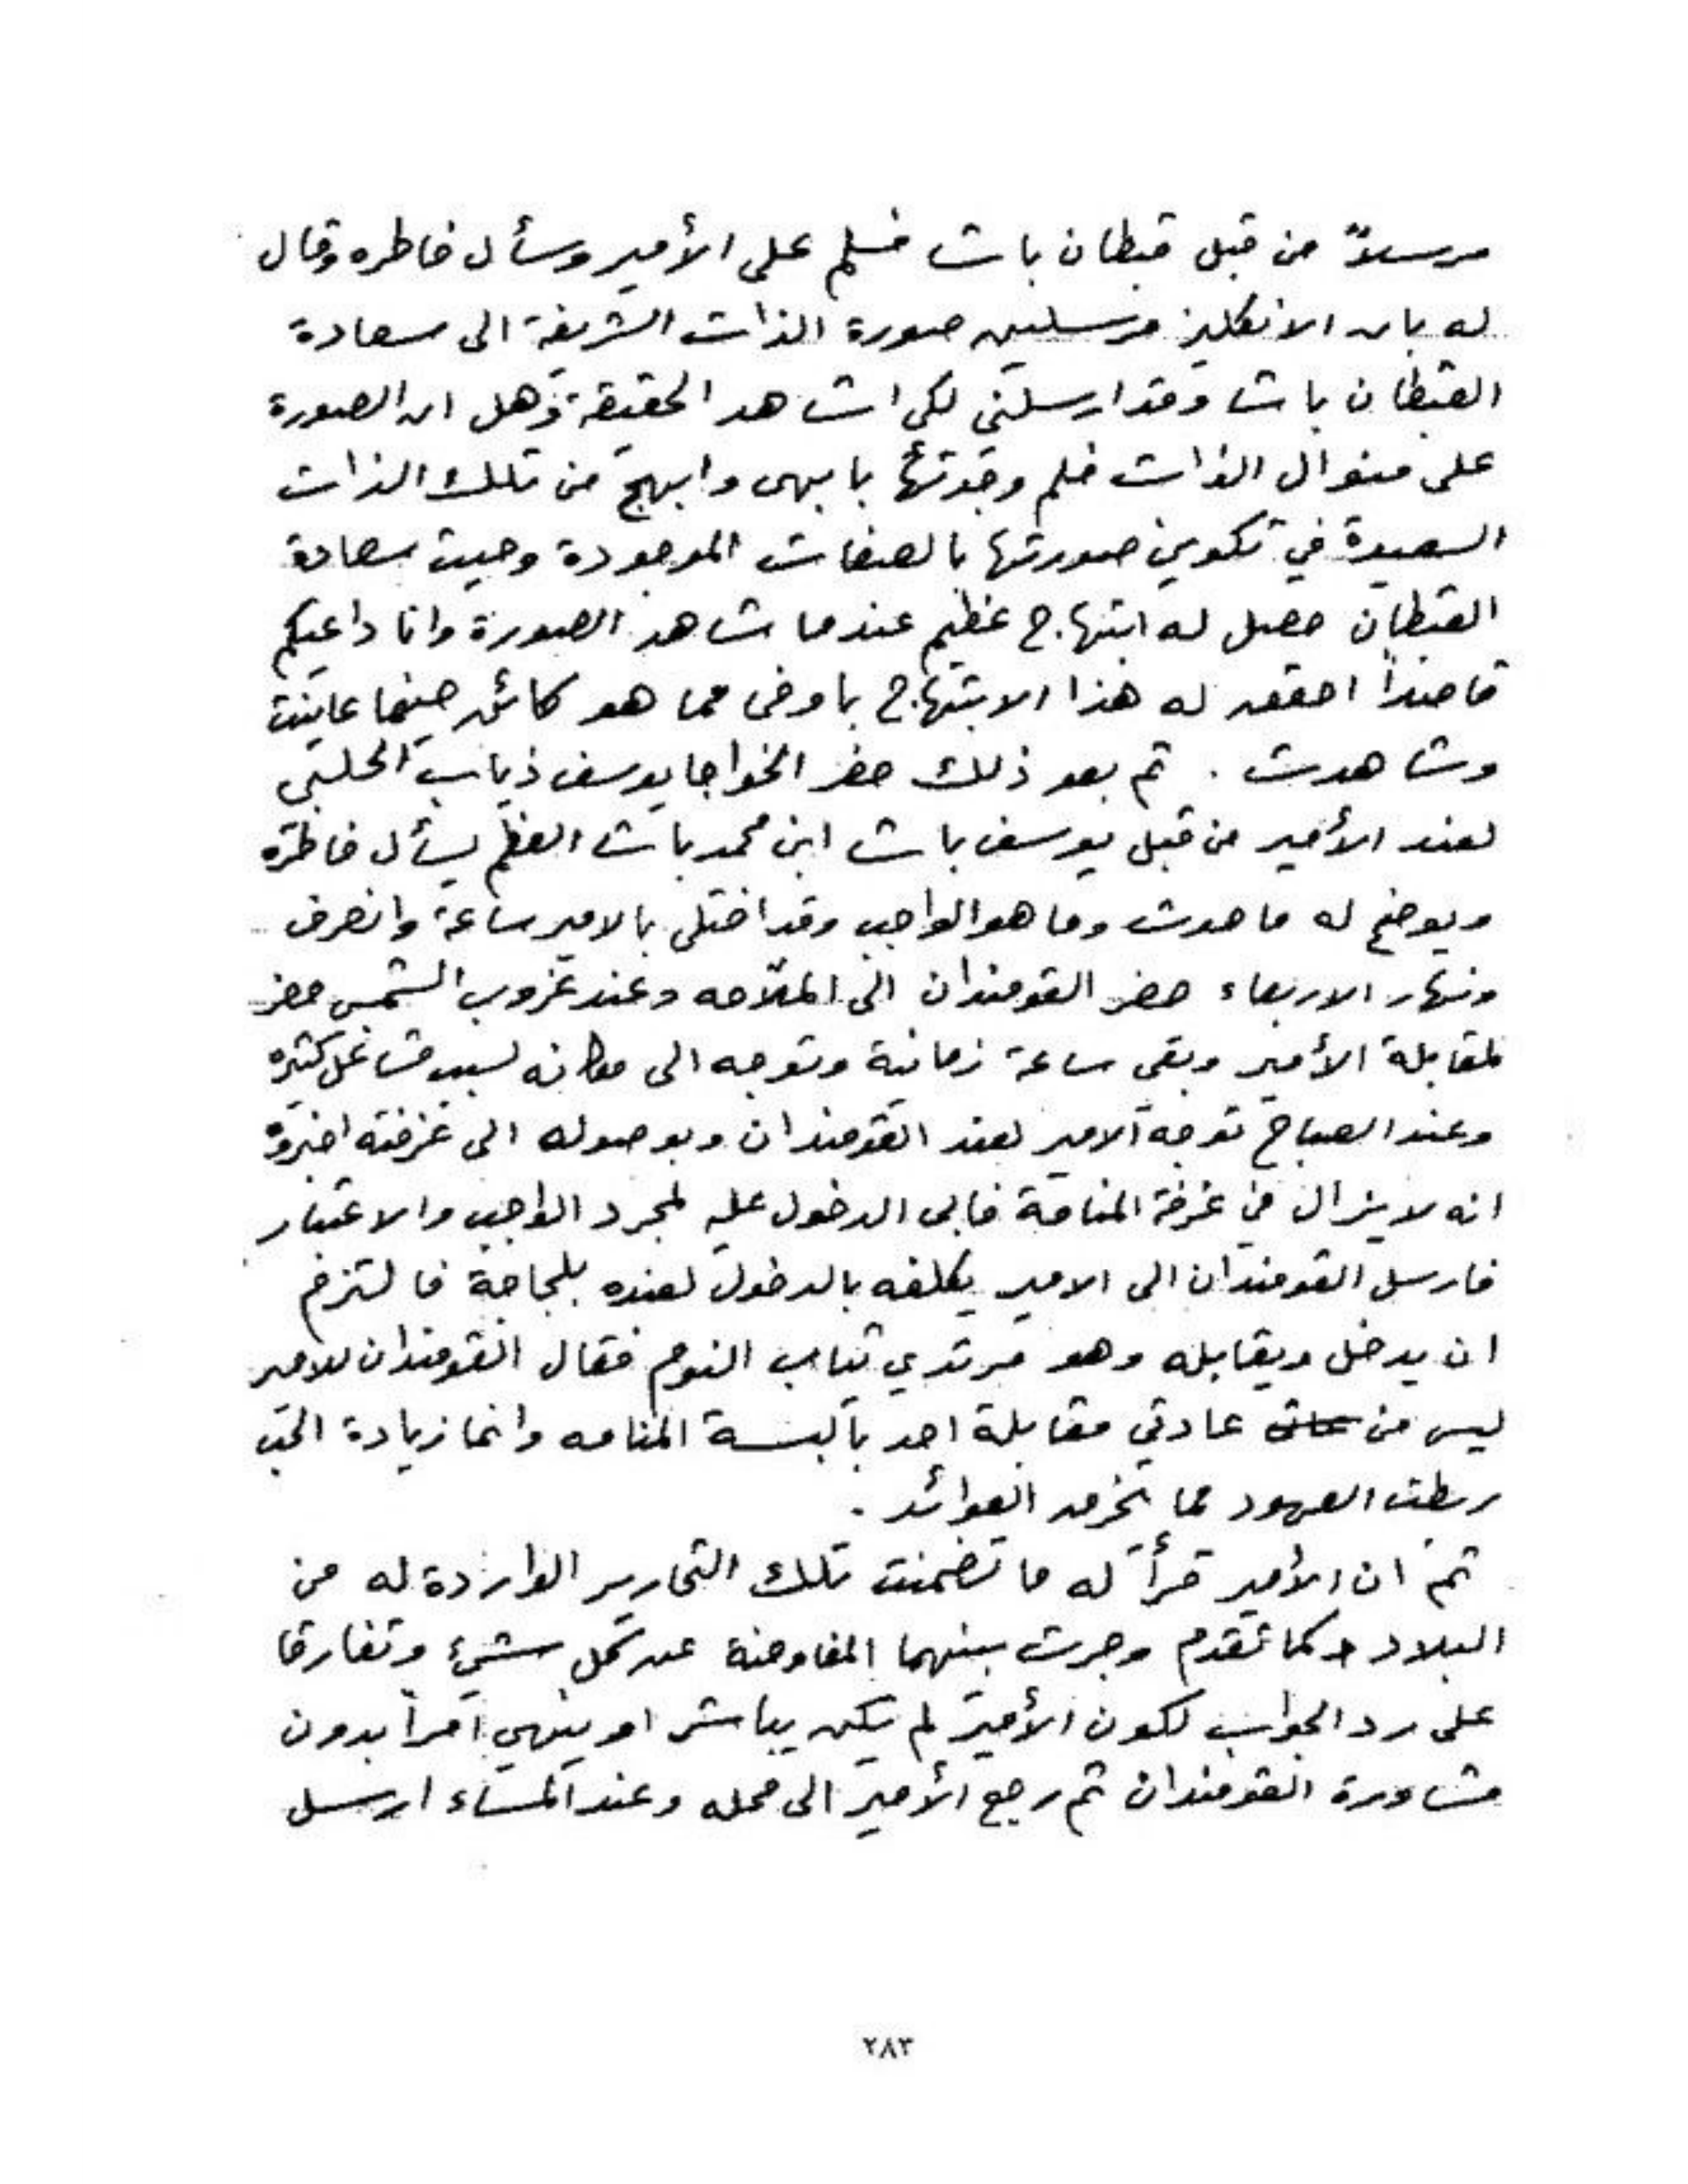 مرسلاً من قبل قبطان باشا فسلم على الأمير وسأل خاطره وقال
له بان الانكليز مرسلين صورة الذات الشريفة الى سعادة
القبطان باشا وقد ارسلني لكي اشاهد الحقيقة وهل ان الصورة
على منوال الذات فلم وجدتها بابهى وابهج من تلك الذات
السعيدة في تكوين صورتها بالصفات الموجودة وحيث سعادة
القبطان حصل له ابتهاج عظيم عندما شاهد الصورة وانا داعيكم
قاصداً احقق له هذا الابتهاج باوفى مما هو كائن حينما عاينت
وشاهدت . ثم بعد ذلك حضر الخواجا يوسف ذياب الحلبي
لعند الأمير من قبل يوسف باشا ابن محمد باشا العظم يسأل خاطره
ويوضح له ما حدث وما هو الواجب وقد اختلى بالامير ساعة وانصرف
ونهار الاربعاء حضر القومندان الى الملاحه وعند غروب الشمس حضر
لمقابلة الأمير وبقي ساعة زمانية وتوجه الى مكانه لسبب مشاغل كثيره
وعند الصباح توجه الامير لعند القومندان وبوصوله الى غرفته اخبروه
انه لا يزال في غرفة المنامة فابى الدخول عليه لمجرد الواجب والاعتبار
فارسل القومندان الى الامير يكلفه بالدخول لعنده بلجاجة فالتزم
ان يدخل ويقابله وهو مرتدي ثياب النوم فقال القومندان للامير
ليس من عادتي مقابلة احد بألبسة المنامه وانما زيادة الحب
ربطت العهود مما تخرق العوائد .
ثم ان الأمير قرأ له ما تضمنت تلك التحارير الواردة له من
البلاد كما تقدم وجرت بينهما المفاوضة عن كل شيء وتفارقا
على رد الجواب لكون الأمير لم يكن يباشر او ينهي امراً بدون
مشاورة القومندان ثم رجع الأمير الى محله وعند المساء ارسل
٢٨٣